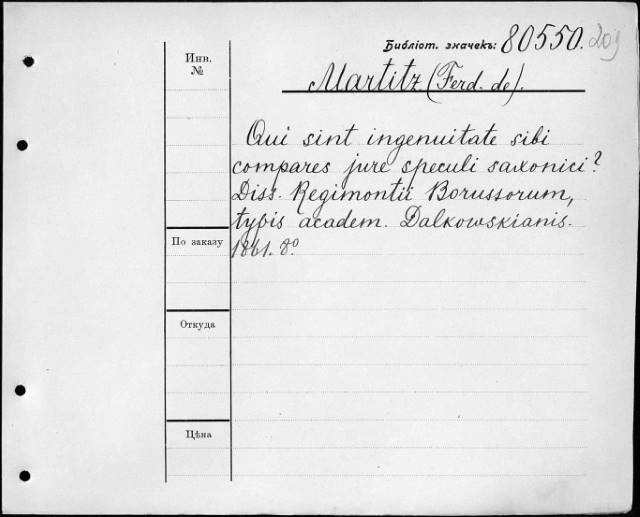 Библіот. значекъ: 80550. 209
Инв.
№
Martitz (Ferd. de).
Qui sint ingenuitate sibi
compares jure speculi saxonici?
Diss. Regimontii Borussorum,
typis academ. Dalkowskianis.
1861. 8º
По заказу
Откуда
Цѣна